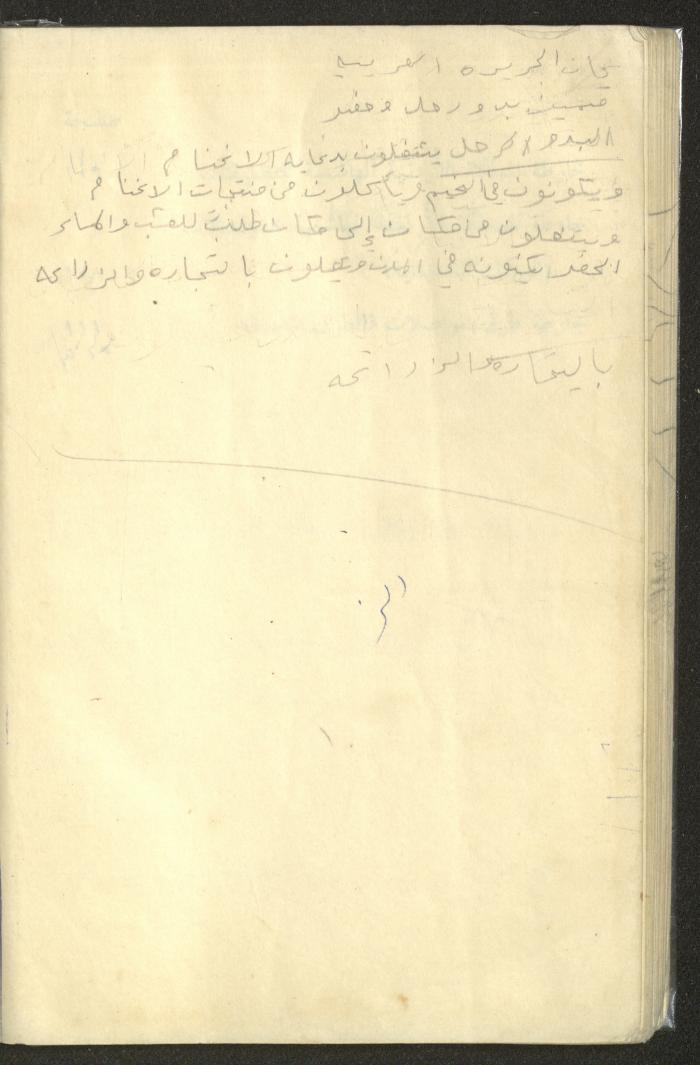 سكان الجزيره العربيه
قسمين بدو رحل وحضر
البدو الرحل يشتغلون برعايه الاغنام
ويكونون في الخيم ويأكلون من منتجات الاغنام
وينتقلون من مكان إلى مكان طلبً للعشب والماء
الحضر يكنونه في المدن ويعملون بالتجاره والزراعه
بالتجاره والزراعه